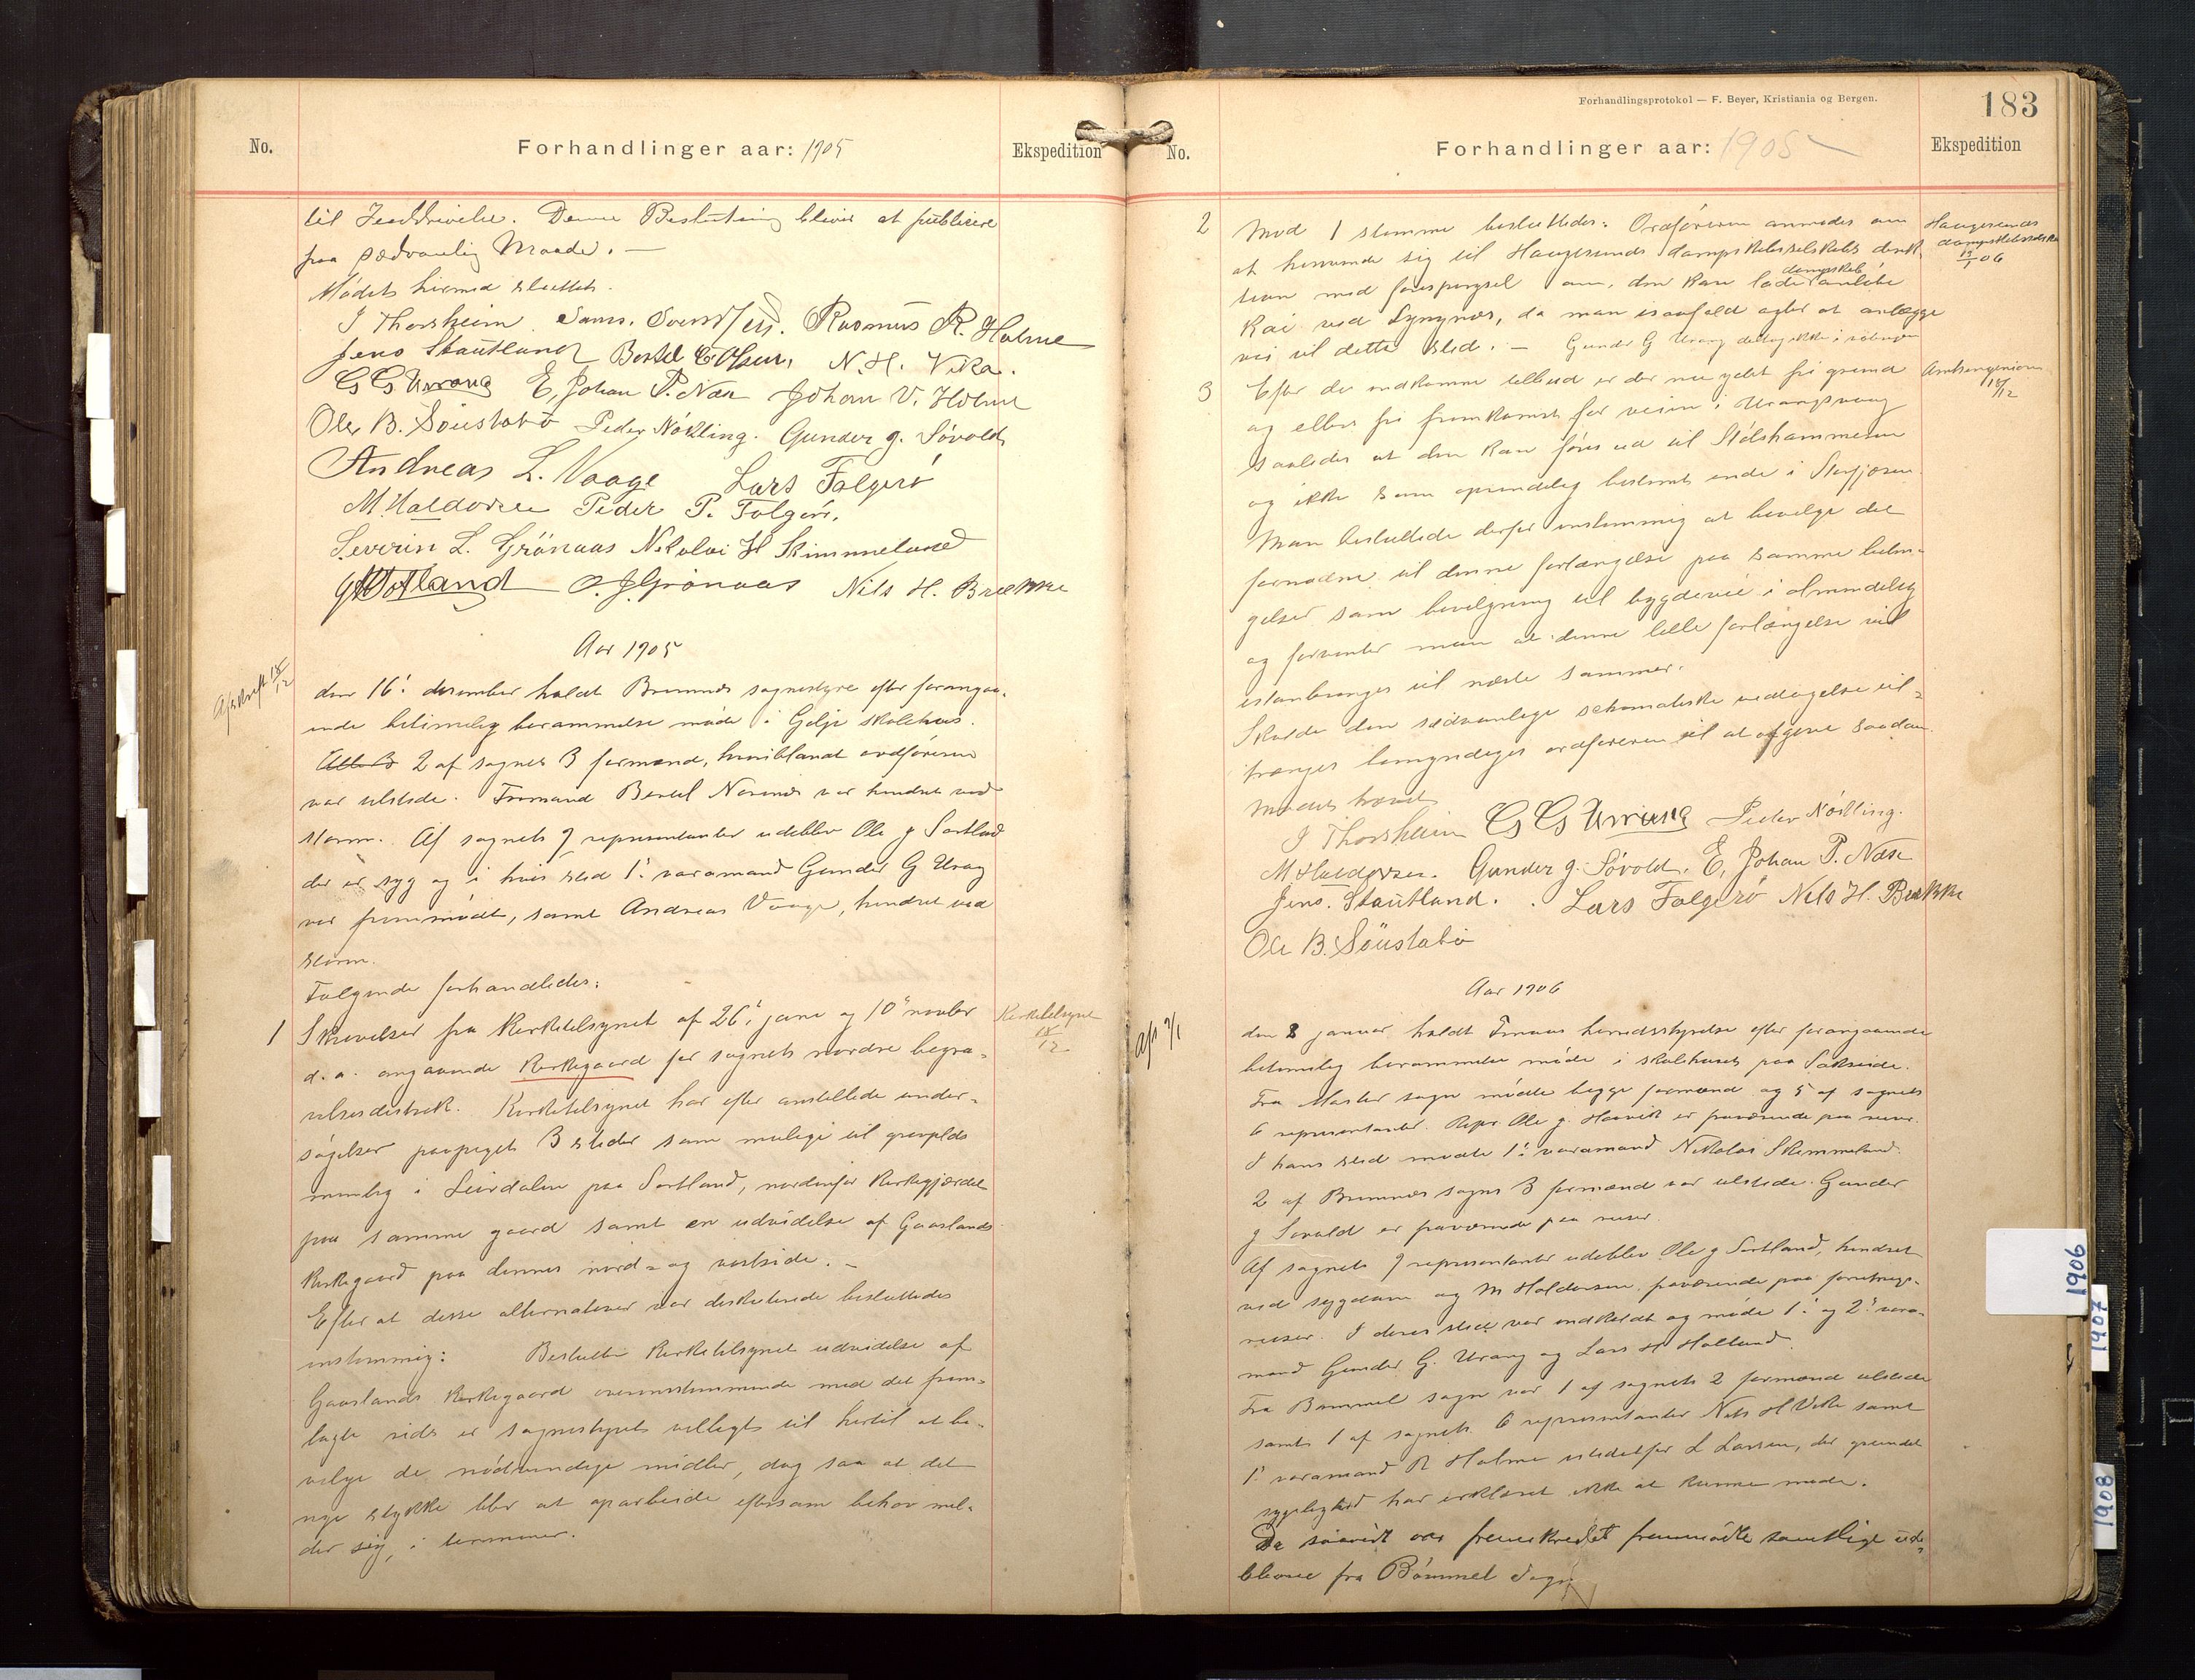 No.
Forhandlinger aar: 1905
Ekspedition
til Inddrivelse. Denne Beslutning bliver at publicere
paa sædvanlig Maade. —
Mødet hermed sluttet.
J Thorsheim Rasmus R. Holme
Jens Stautland Bertel E Olsen, N. H. Vika.
G G Urrang E, Johan P. Næs Johan V. Holme
Ole B. Söüstabö Peder Nökling. Gunder g. Sóvold
Andreas L. Vaage Lars Folgerö
M. Haldorsen Peder P. Folgerö.
Severin L. Grönaas Nikolai H Skimmeland
O. J. Grönaas Nils H. Brekke
Aar 1905
Afskrift 18/12
den 16: desember holdt Bremnes sognestyre efter forangaa-
ende betimelig berammelse møde i Gilje skolehus.
2 af sognets 3 formænd, hvoriblandt ordføreren
var tilstede. Formand Bertel Norines var hindret ved
storm. Af sognets 7 representanter udeblev Ole J Sortland
der er syg og i hvis sted 1: varamand Gunder G Urang
var fremmødt, samt Andreas Vaage, hindret ved
storm.
Følgende forhandledes:
1 Skrivelser fra Kirketilsynet af 26: juni og 10: novbr
Kirketilsynet 18/12
d. a. angaaende Kirkegaard for sognets nordre begra-
velsesdistrikt. Kirketilsynet har efter anstillede under-
søgelser paapeget 3 steder som mulige til gravplads
nemlig i Leirdalen paa Sortland, nordenfor Kirkegjærdet
paa samme gaard samt en udvidelse af Gaaslands
Kirkegaard paa dennes nord- og vestside. —
Efter at disse alternativer var diskuterede besluttedes
enstemmig: Beslutter Kirketilsynet udvidelse af
Gaaslands Kirkegaard overensstemmende med det frem-
lagte rids er sognestyret villigt til hertil at be-
vilge de nødvendige midler, dog saa at det
nye stykke blir at oparbeide eftersom behov mel-
der sig, i terminer.
Forhandlingsprotokol — F. Beyer, Kristiania og Bergen.
183
No.
Forhandlinger aar: 1905
Ekspedition
2 Mod 1 stemme besluttedes: Ordføreren anmodes om
Haugesunds dampskibsselskab 19/1 06
at henvende sig til Haugesunds dampskibsselskabs direk-
tion med forespørgsel om, den kan lade dampskib anløbe
Kai ved Lyngnes, da man isaafald agter at anlægge
vei til dette sted. — Gunder G Urang deltog ikke i
3 Efter de indkomne tilbud er der nu ydet fri grund
Amtsingeniøren 18/12
og ellers fri fremkomst for veien i Urangsvaag
saaledes at den kan føres ud til Stølshammeren
og ikke som oprindelig bestemt ende i
Man besluttede derfor enstemmig at bevilge det
fornødne til denne forlængelse paa samme betin-
gelser som bevilgning til bygdevei i almindelig
og forventer man at denne lille forlængelse vil
istandbringes til næste sommer.
Skulde den sædvanlige schematiske vedtagelse til-
trænges bemyndiges ordføreren til at afgive saadan.
Mødet hævet
J Thorsheim G G Urrang Peder Nökling.
M Haldorsen. Gunder g. Sóvold. E, Johan P. Næse
Jens. Stautland. Lars Folgerö Nils H. Brekke
Ole B. Söüstabö
Aar 1906
Afs 9/1
den 8 januar holdt Finnaas herredsstyrelse efter forangaaende
betimelig berammelse møde i skolehuset paa Sakseide.
Fra Moster sogn mødte begge formænd og 5 af sognets
6 representanter. Repr. Ole J. Hovik er fraværende paa reise.
I hans sted mødte 1: varamand Nikolai Skimmeland.
2 af Bremnes sogns 3 formænd var tilstede. Gunder
g Sovold er fraværende paa reise
Af sognets 7 representanter udeblev Ole J Sortland, hindret
ved sygdom og M Haldorsen, fraværende paa forretnings-
reiser. I deres sted var indkaldt og møde 1: og 2: vara-
mand Gunder G. Urang og Lars H Holland.
Fra Bømmel sogn var 1 af sognets 2 formænd tilstede
samt 1 af sognets 6 representanter Nils H Vika samt
1: varamand R Holme istedetfor L Larsen, der grundet
sygelighed har erklæret ikke at kunne møde.
Da saavidt var fremskredet fremmødte samtlige ude-
blevne fra Bömmel Sogn
1906
1907
1908